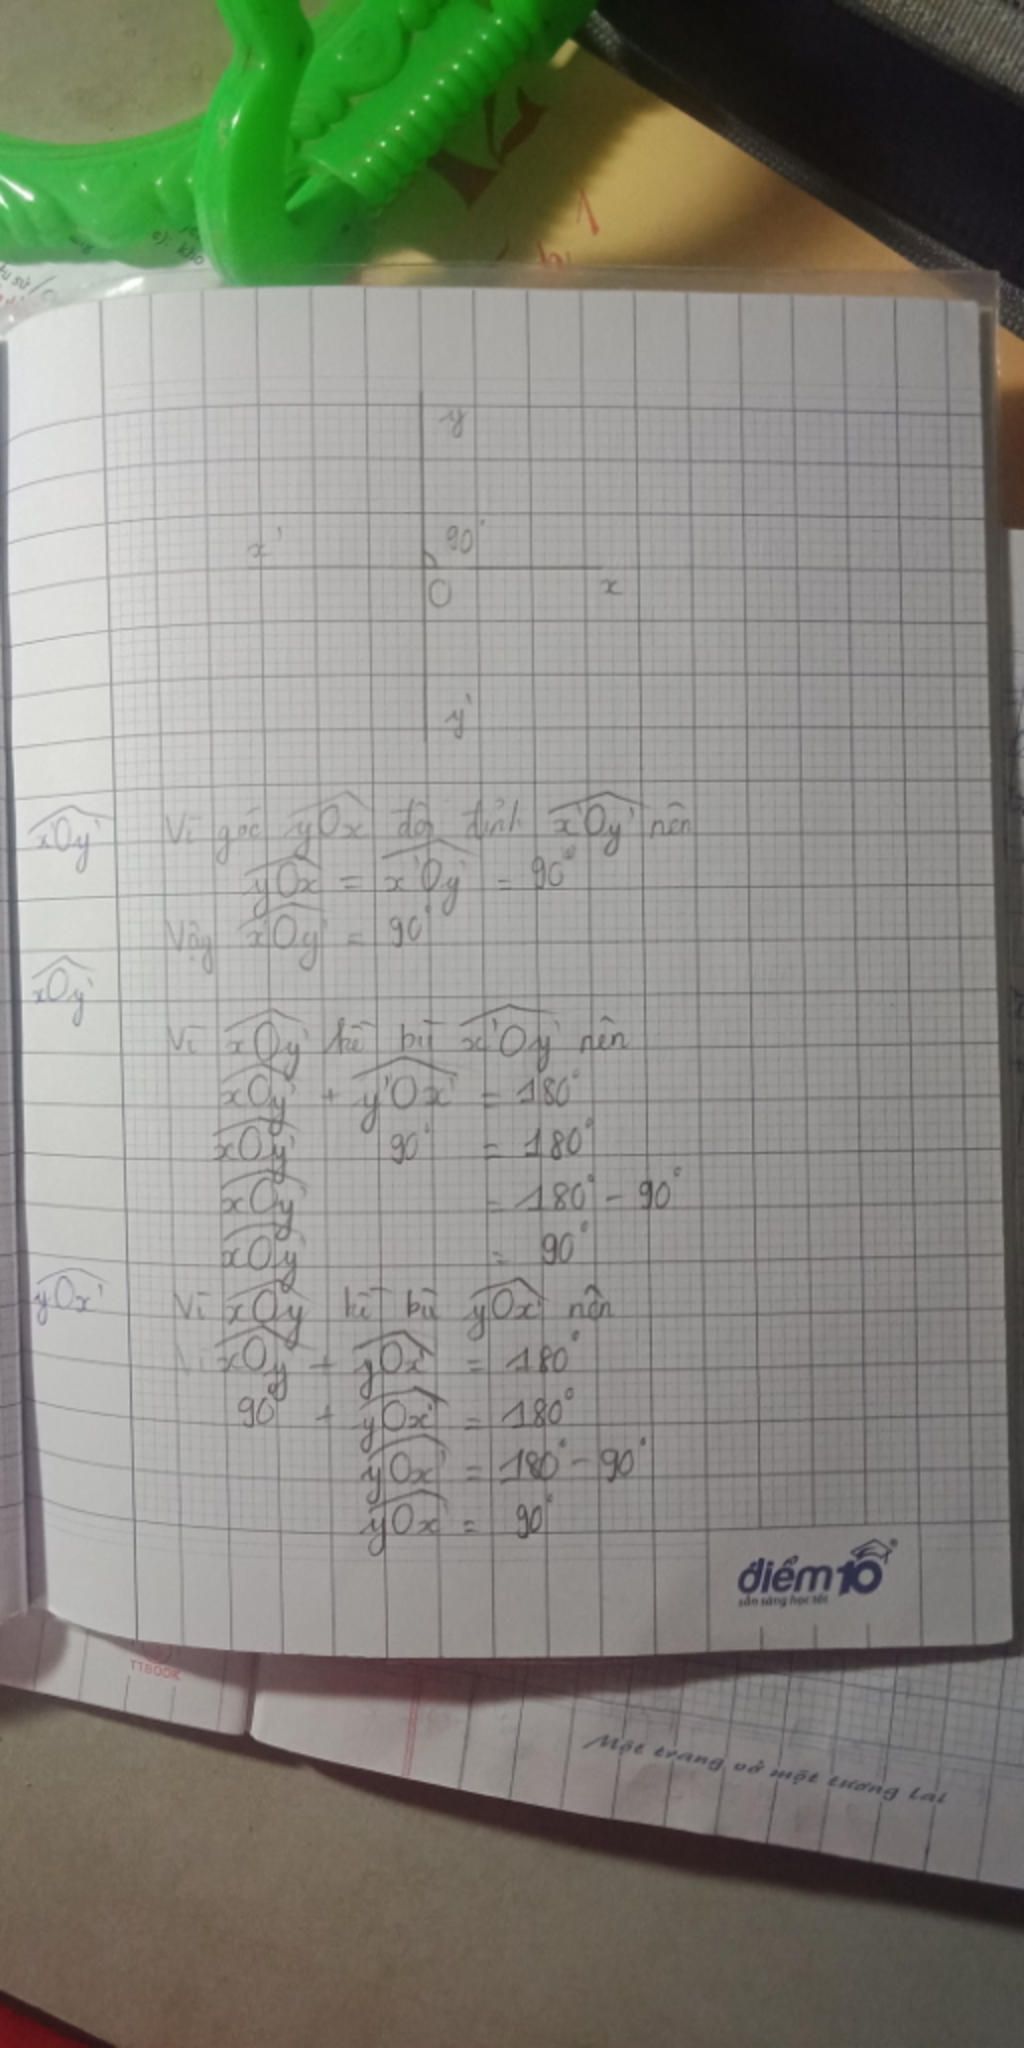 y
x'
90°
O
x
y'
x'Oy'
Vì góc yOx đối đỉnh x'Oy' nên
yOx = x'Oy' = 90°
Vậy x'Oy' = 90°
xOy'
Vì xOy' kề bù x'Oy' nên
xOy' + y'Ox' = 180°
xOy' 90° = 180°
xOy' = 180° - 90°
xOy' = 90°
yOx'
Vì xOy kề bù yOx' nên
xOy + yOx' = 180°
90° + yOx' = 180°
yOx' = 180° - 90°
yOx' = 90°
điểm10
sẵn sàng học tốt
TTBOOK
Một trang vở một tương lai